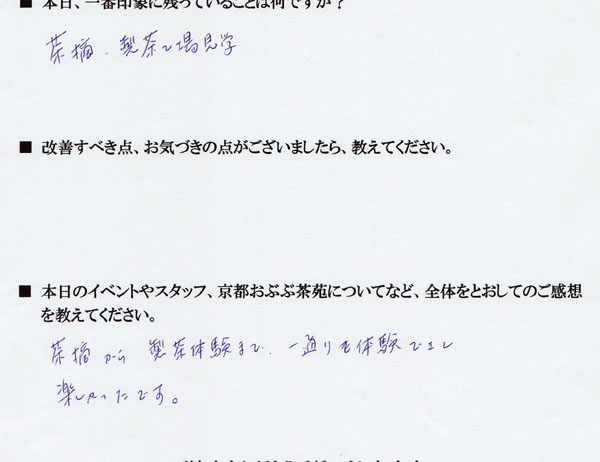 ■ 本日、一番印象に残っていることは何ですか？
茶摘、製茶工場見学
■ 改善すべき点、お気づきの点がございましたら、教えてください。
■ 本日のイベントやスタッフ、京都おぶぶ茶苑についてなど、全体をとおしてのご感想
を教えてください。
茶摘から製茶体験まで、一通りを体験できて
楽しかったです。